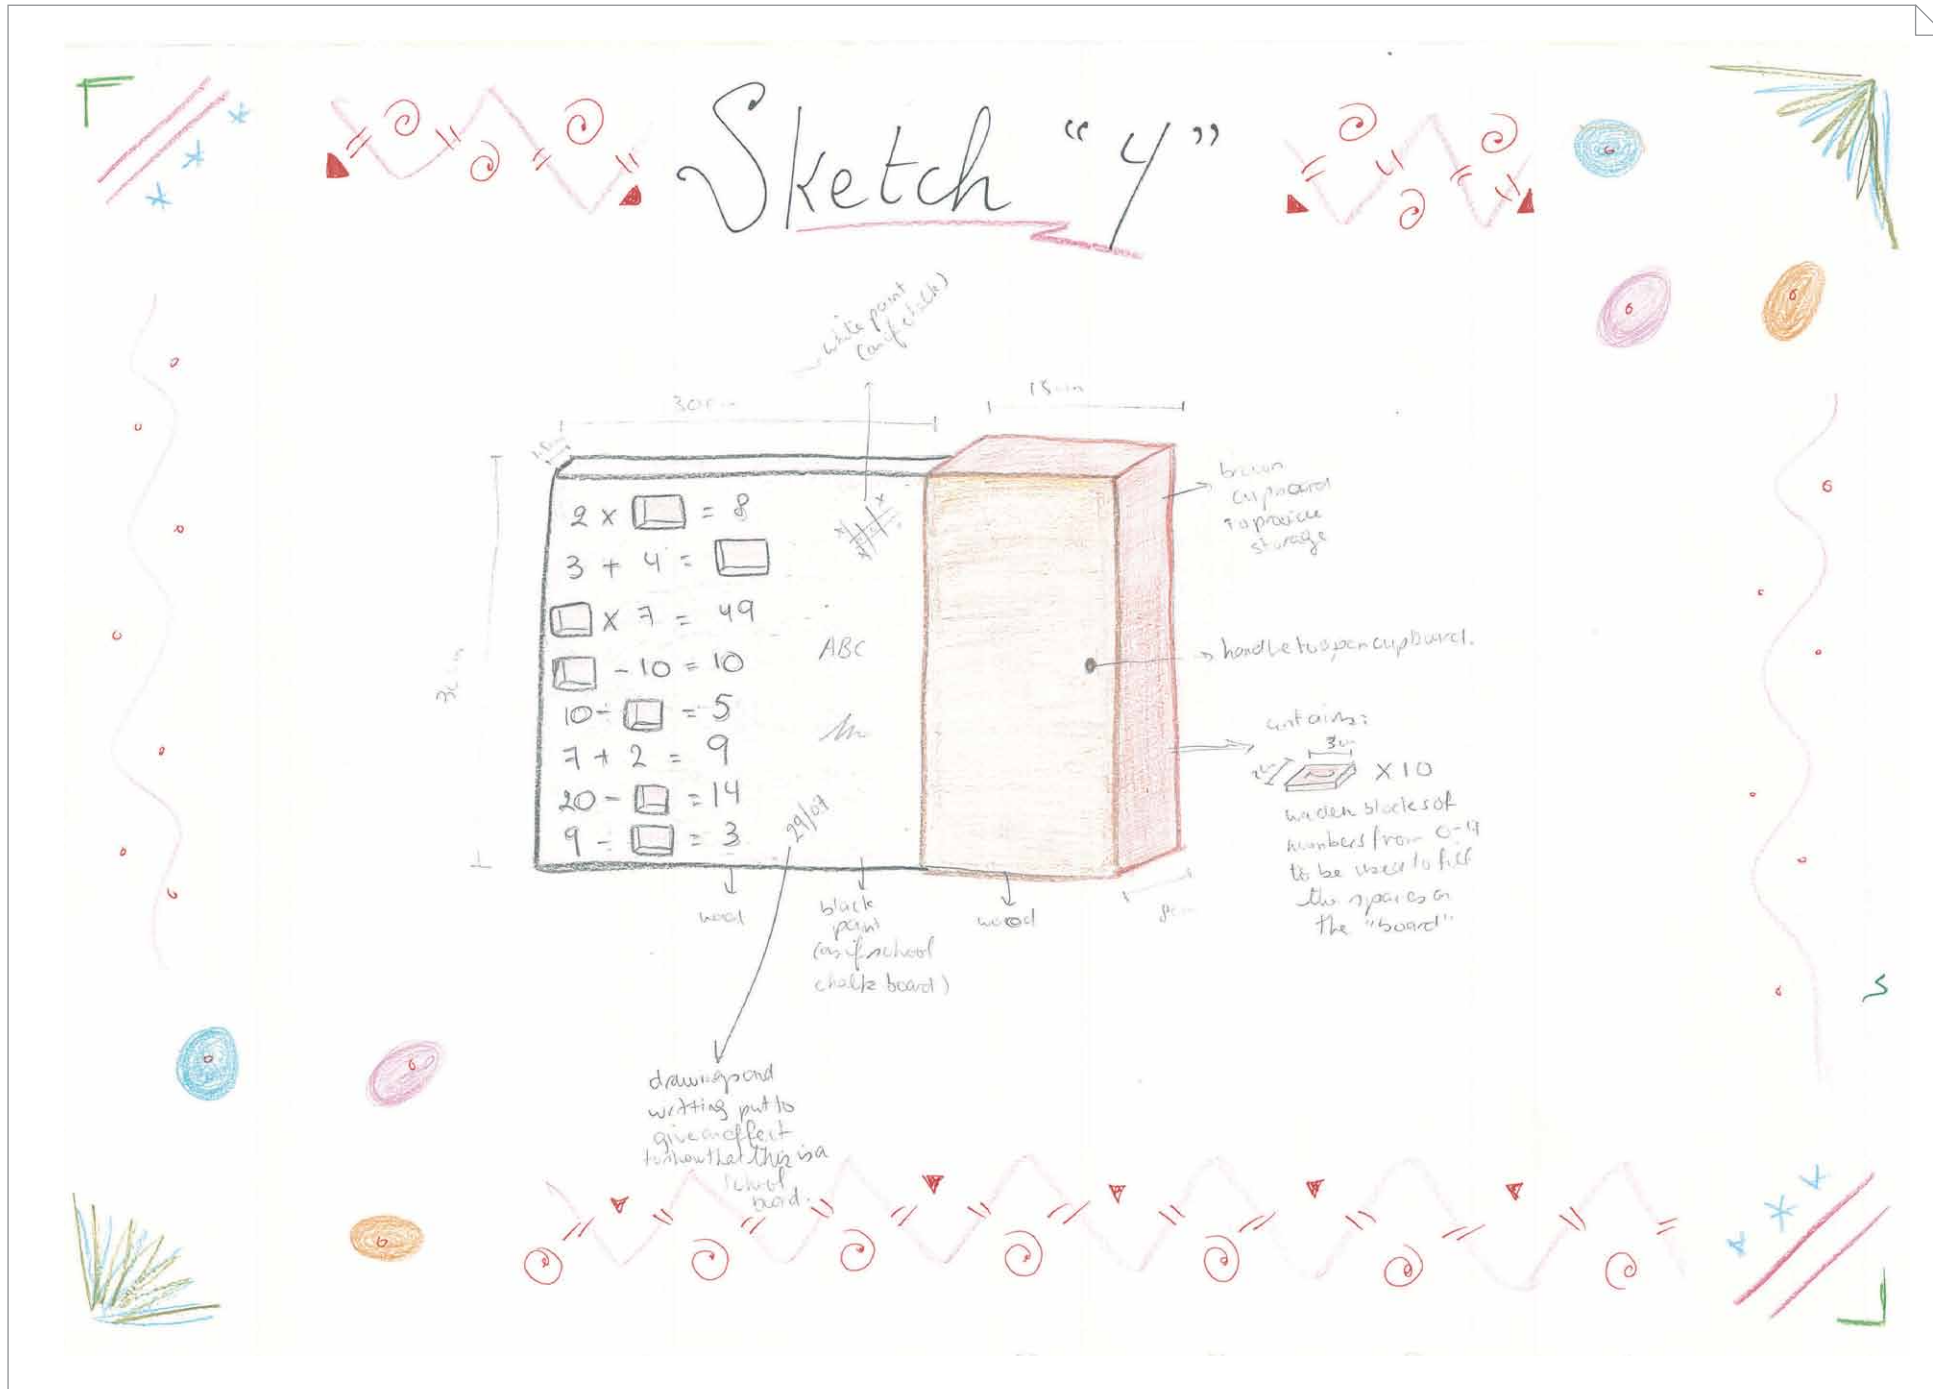 Sketch "4"
white paint
(as if chalk)
30cm
15cm
2 x = 8
3 + 4 =
x 7 = 49
- 10 = 10
10 - = 5
7 + 2 = 9
20 - = 14
9 - = 3
ABC
29/07
brown
cupboard
to provide
storage
handle to open cupboard.
contains:
3cm
x 10
wooden blocks of
numbers from 0-9
to be used to fill
the spaces on
the "board"
8cm
wood
black
paint
(as if school
chalk board)
wood
drawings and
writting put to
give an effect
to show that this is a
school
board.